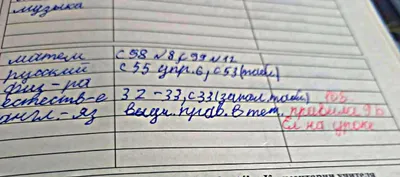 музыка
матем с 58 №8, с 59 №12
русский с 55 упр. 6, с 53 (табл)
физ-ра
естеств-е 32-33, с 33 (запол. табл.)
англ-яз выуч. прав. в тет. правила 96
на уроке
учителя